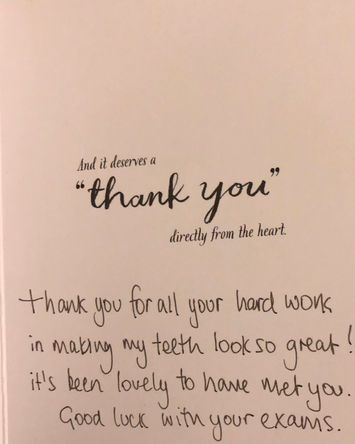 And it deserves a
“thank you”
directly from the heart.
thank you for all your hard work
in making my teeth look so great!
it's been lovely to have met you.
Good luck with your exams.